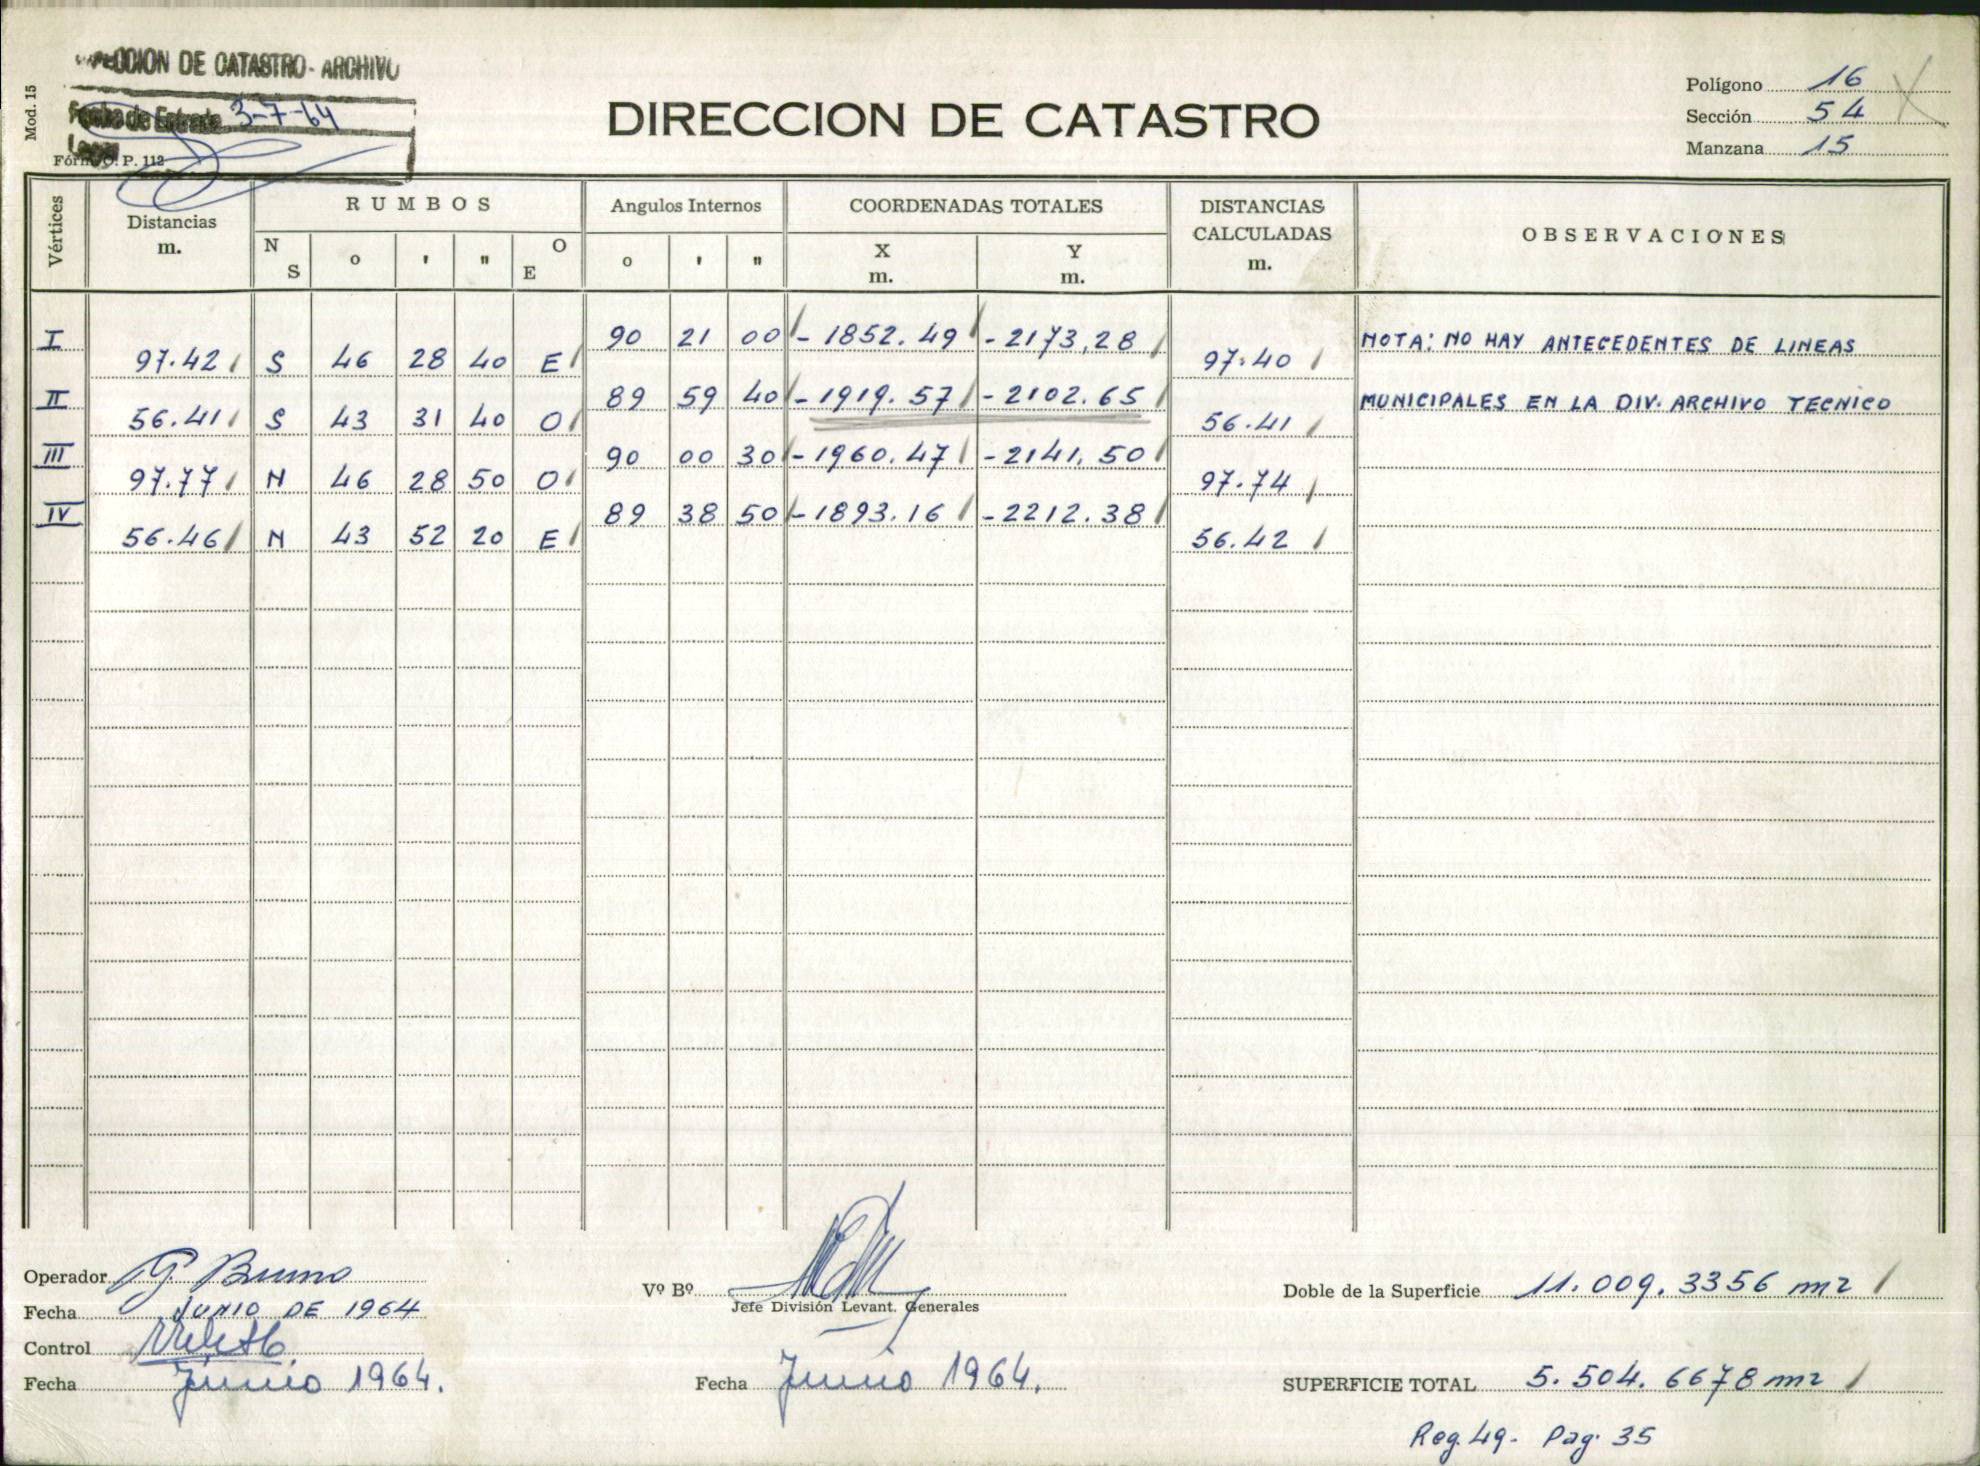 DIRECCION DE CATASTRO - ARCHIVO
Fecha de Entrada 3-7-64
Mod. 15
Fórm. O. P. 112
DIRECCION DE CATASTRO
Polígono 16
Sección 54
Manzana 15
Vértices Distancias m. RUMBOS Angulos Internos COORDENADAS TOTALES DISTANCIAS CALCULADAS m. OBSERVACIONES
N S o ' " O E o ' " X m. Y m.
I 90 21 00 - 1852.49 - 2173,28 NOTA: NO HAY ANTECEDENTES DE LINEAS
97.42 S 46 28 40 E 97.40
II 89 59 40 - 1919.57 - 2102.65 MUNICIPALES EN LA DIV. ARCHIVO TECNICO
56.41 S 43 31 40 O 56.41
III 90 00 30 - 1960.47 - 2141.50
97.77 N 46 28 50 O 97.74
IV 89 38 50 - 1893.16 - 2212.38
56.46 N 43 52 20 E 56.42
Operador G. Bruno
Fecha JUNIO DE 1964
Control
Fecha Junio 1964.
Vº Bº
Jefe División Levant. Generales
Fecha Junio 1964.
Doble de la Superficie 11.009.3356 m2
SUPERFICIE TOTAL 5.504.6678 m2
Reg. 49- Pag. 35